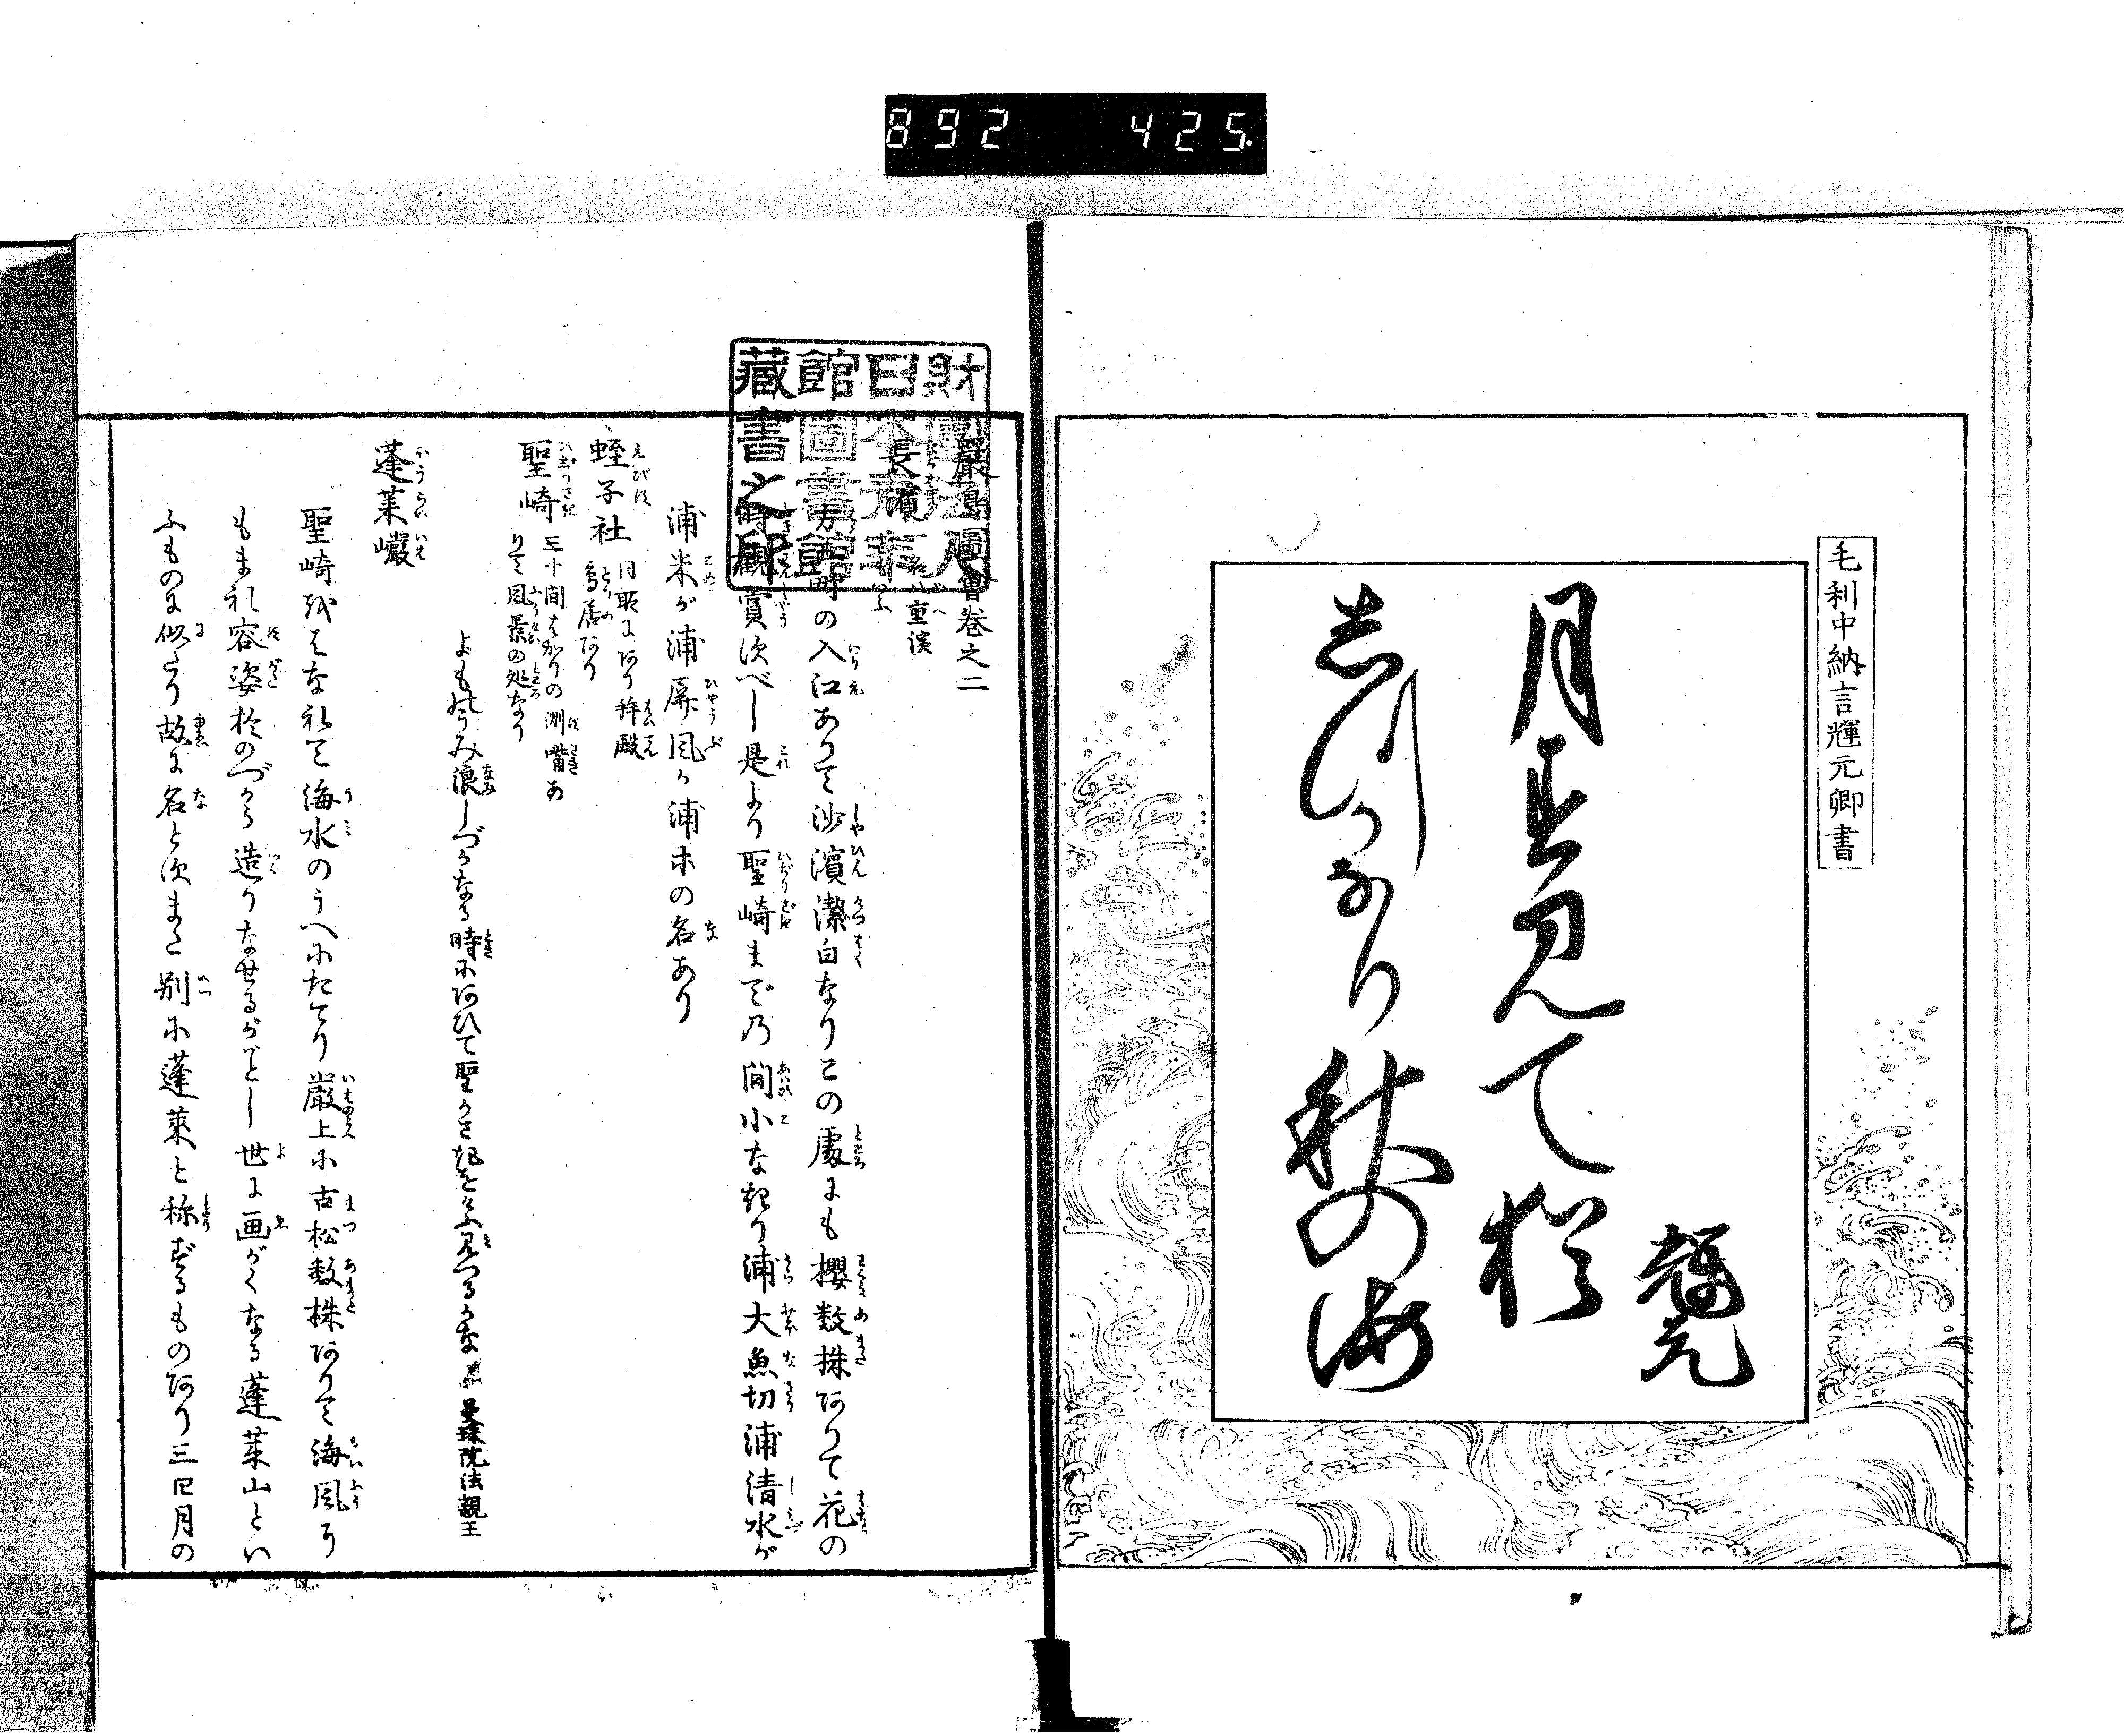 892 425
毛利中納言輝元卿書
輝元
月を見て猶
しつかなり秋の海
財團法人
日本青年
館圖書館
藏書之印
嚴島圖會卷之二
長濱 名八重濱
ともいふ
方一町の入江ありて沙濱潔白なりこの處にも櫻数株ありて花の
時観賞次べし是より聖崎までの間小なきり浦大魚切浦清水が
浦米が浦屏風が浦ホの名あり
蛭子社 同所にあり拝殿
鳥居あり
聖崎 三十間ばかりの洲嘴あ
りて風景の処なり
よものうみ浪しづかなる時にあひて聖がさきをけふ見つるかな 曼珠院法親王
蓬莱巖
聖崎をはなれて海水のうへにたてり巖上に古松数株ありて海風に
もまれ容姿於のづから造りなせるがごとし世に画がくなる蓬莱山とい
ふものに似たり故に名と次また別に蓬莱と称ずるものあり三四月の